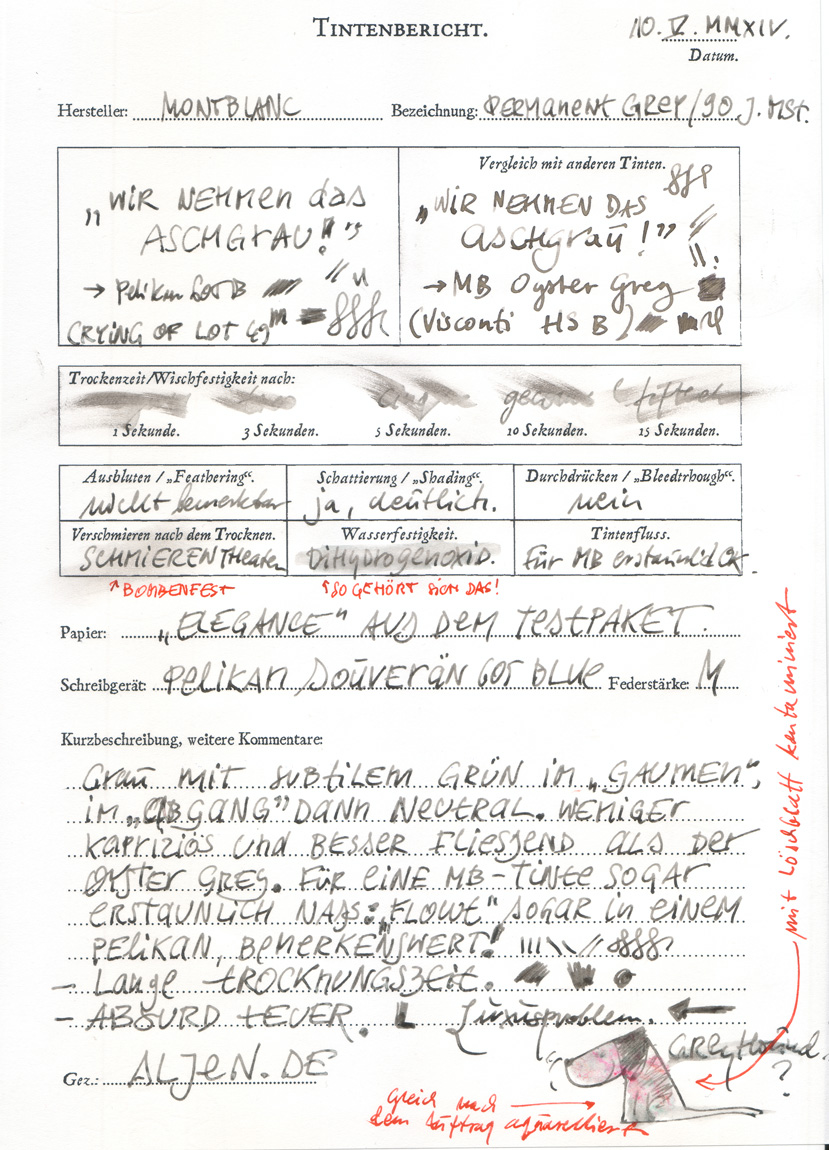 TINTENBERICHT.
10. V. MMXIV.
Datum.
Hersteller: MONTBLANC
Bezeichnung: PERMANENT GREY/90 J. MST.
„WIR NEHMEN das
ASCHGRAU!”
→ Pelikan 605 B
CRYING OF LOT 49
Vergleich mit anderen Tinten.
„WIR NEHMEN DAS
ASCHGRAU!”
→ MB Oyster Grey
(Visconti HS B)
Trockenzeit/Wischfestigkeit nach:
1 Sekunde. 3 Sekunden. 5 Sekunden. 10 Sekunden. 15 Sekunden.
Ausbluten / „Feathering“. Schattierung / „Shading“. Durchdrücken / „Bleedtrhough“.
nicht bemerkbar ja, deutlich. nein
Verschmieren nach dem Trocknen. Wasserfestigkeit. Tintenfluss.
SCHMIERENTHEATER DIHYDROGENOXID. FÜR MB erstaunlich OK.
↑BOMBENFEST ↑SO GEHÖRT SICH DAS!
Papier: „ELEGANCE“ AUS DEM TESTPAKET.
Schreibgerät: PELIKAN SOUVERÄN 605 BLUE Federstärke: M
Kurzbeschreibung, weitere Kommentare:
Grau MIT SUBTILEM GRÜN IM „GAUMEN“,
IM „ABGANG” DANN NEUTRAL. WENIGER
KAPRIZIÖS UND BESSER FLIESSEND ALS DER
OYSTER GREY. FÜR EINE MB-TINTE SOGAR
ERSTAUNLICH NASS: „FLOWT“ SOGAR IN EINEM
PELIKAN, BEMERKENSWERT!
– Lange TROCKNUNGSZEIT.
– ABSURD TEUER. Luxusproblem. ←
Gez.: ALJEN.DE
GREYHOUND
?
Gleich nach →
dem Auftrag aquarelliert
mit Löschblatt kontaminiert